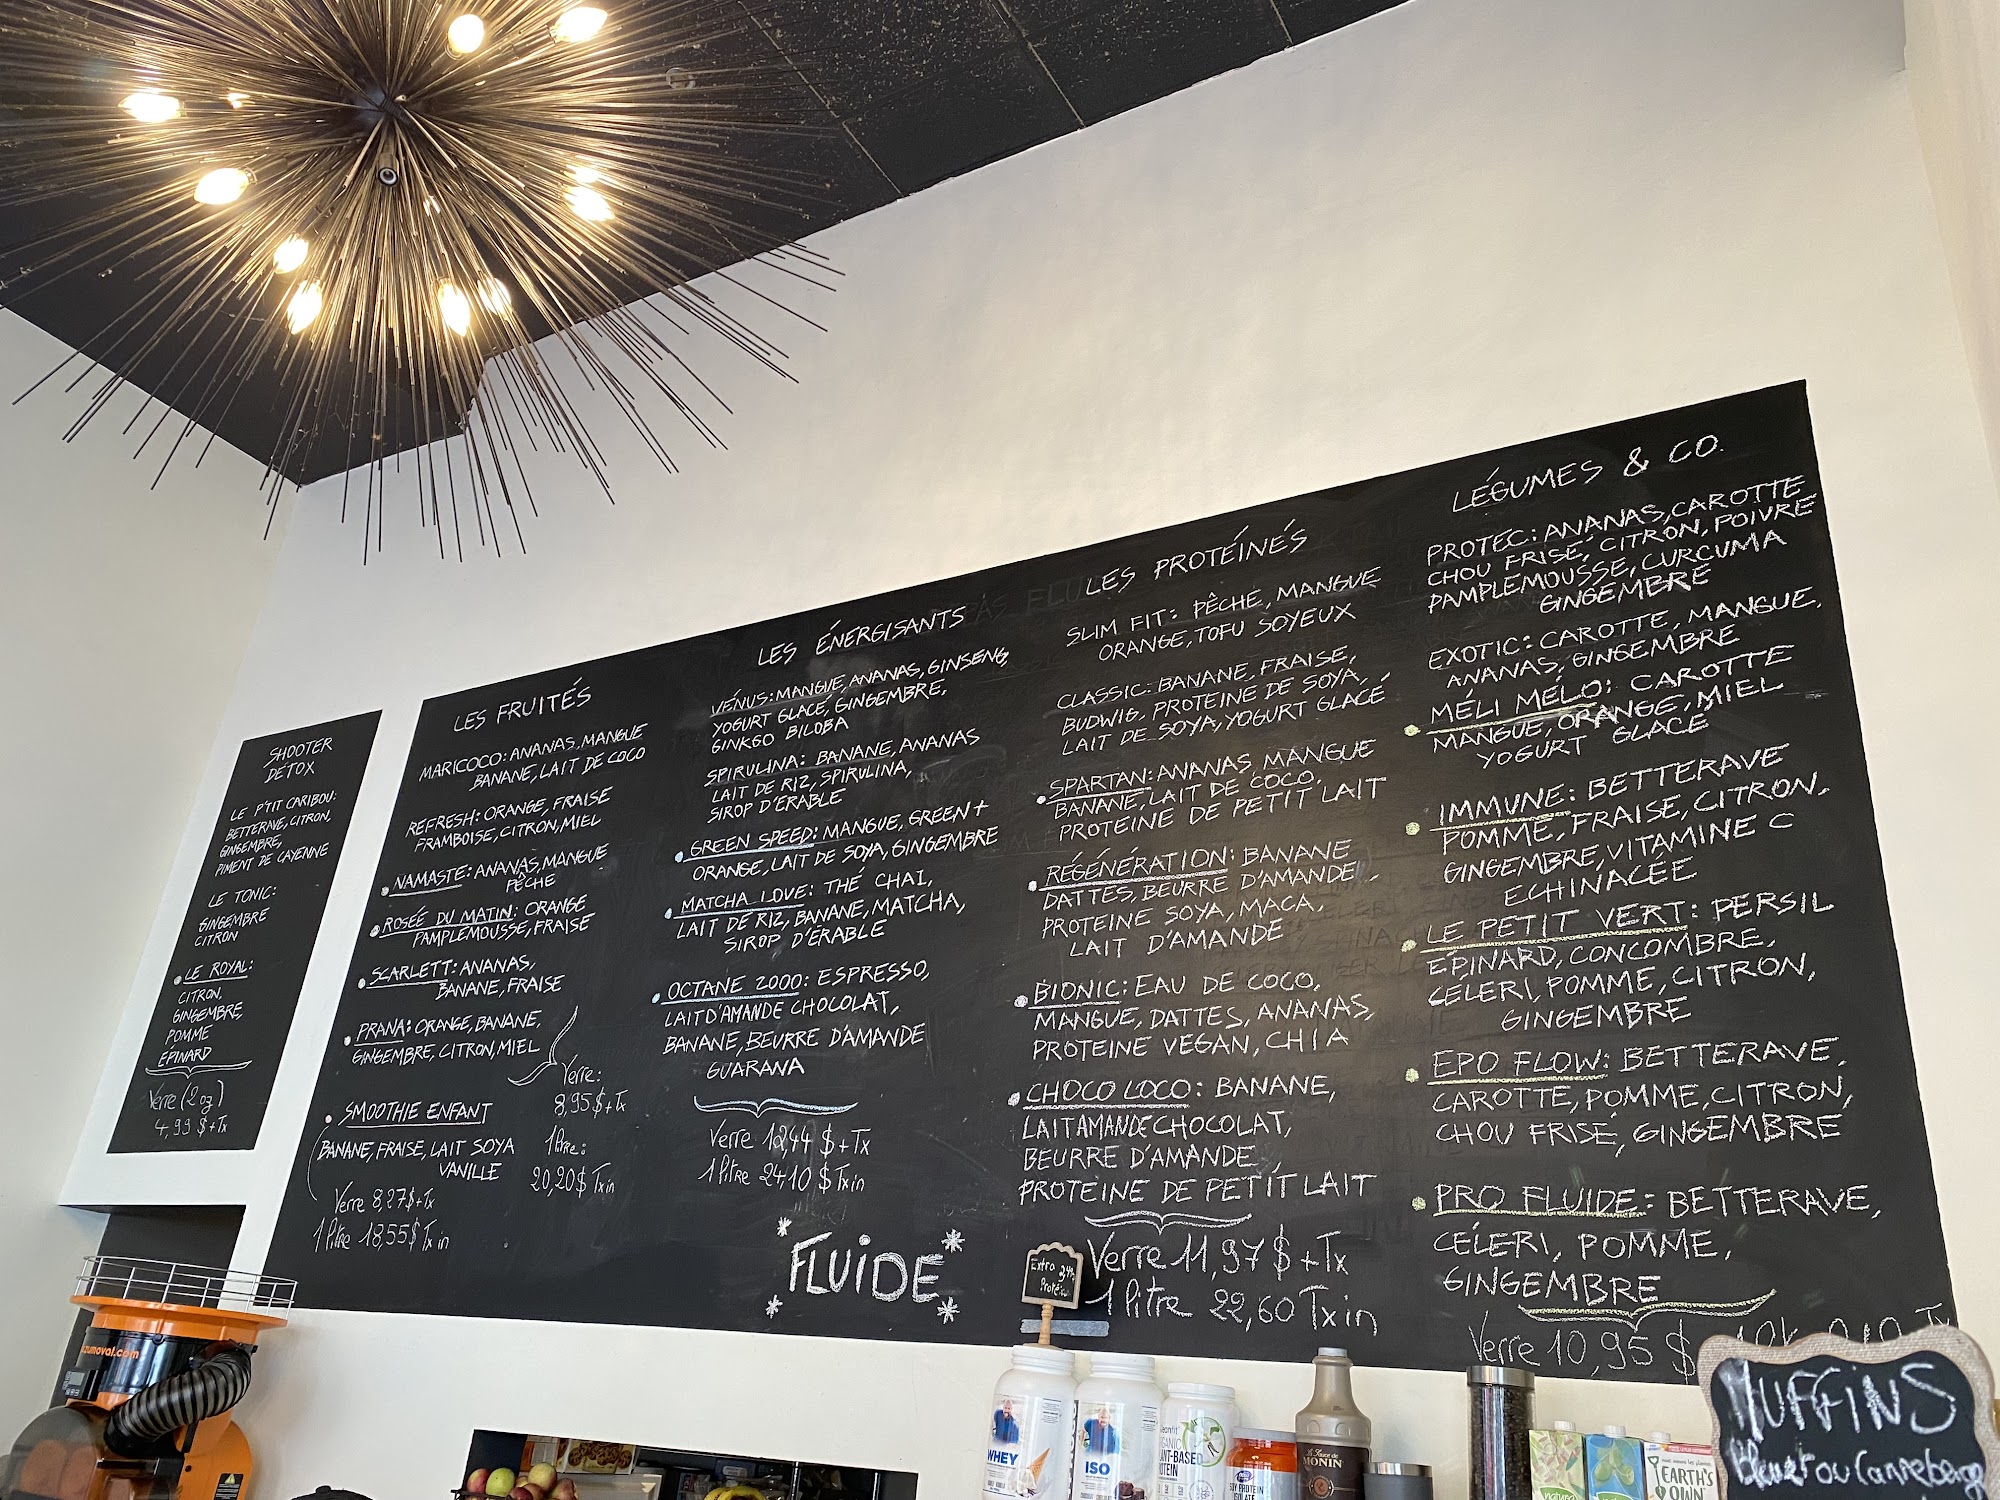 SHOOTER
DÉTOX
LE P'TIT CARIBOU:
BETTERAVE, CITRON,
GINGEMBRE,
PIMENT DE CAYENNE
LE TONIC:
GINGEMBRE
CITRON
LE ROYAL:
CITRON,
GINGEMBRE,
POMME
ÉPINARD
Verre (2oz)
4,99 $+Tx
LES FRUITÉS
MARICOCO: ANANAS, MANGUE
BANANE, LAIT DE COCO
REFRESH: ORANGE, FRAISE
FRAMBOISE, CITRON, MIEL
NAMASTE: ANANAS, MANGUE
PÊCHE
ROSÉE DU MATIN: ORANGE
PAMPLEMOUSSE, FRAISE
SCARLETT: ANANAS,
BANANE, FRAISE
PRANA: ORANGE, BANANE,
GINGEMBRE, CITRON, MIEL
Verre:
8,95$+Tx
1 litre:
20,20$ Txin
SMOOTHIE ENFANT
BANANE, FRAISE, LAIT SOYA
VANILLE
Verre 8,27$+Tx
1 litre 18,55$ Txin
LES ÉNERGISANTS
VÉNUS: MANGUE, ANANAS, GINSENG,
YOGURT GLACÉ, GINGEMBRE,
GINKGO BILOBA
SPIRULINA: BANANE, ANANAS
LAIT DE RIZ, SPIRULINA,
SIROP D'ÉRABLE
GREEN SPEED: MANGUE, GREEN+
ORANGE, LAIT DE SOYA, GINGEMBRE
MATCHA LOVE: THÉ CHAI,
LAIT DE RIZ, BANANE, MATCHA,
SIROP D'ÉRABLE
OCTANE 2000: ESPRESSO,
LAIT D'AMANDE CHOCOLAT,
BANANE, BEURRE D'AMANDE
GUARANA
Verre 12,44 $+Tx
1 litre 24,10 $ Txin
FLUIDE
LES PROTÉINÉS
SLIM FIT: PÊCHE, MANGUE
ORANGE, TOFU SOYEUX
CLASSIC: BANANE, FRAISE,
BUDWIG, PROTEINE DE SOYA,
LAIT DE SOYA, YOGURT GLACÉ
SPARTAN: ANANAS, MANGUE
BANANE, LAIT DE COCO,
PROTEINE DE PETIT LAIT
RÉGÉNÉRATION: BANANE
DATTES, BEURRE D'AMANDE,
PROTEINE SOYA, MACA,
LAIT D'AMANDE
BIONIC: EAU DE COCO,
MANGUE, DATTES, ANANAS,
PROTEINE VEGAN, CHIA
CHOCO LOCO: BANANE,
LAIT AMANDE CHOCOLAT,
BEURRE D'AMANDE
PROTEINE DE PETIT LAIT
Verre 11,97$+Tx
1 litre 22,60 Txin
Extra
LÉGUMES & CO.
PROTEC: ANANAS, CAROTTE
CHOU FRISÉ, CITRON, POIVRE
PAMPLEMOUSSE, CURCUMA
GINGEMBRE
EXOTIC: CAROTTE, MANGUE,
ANANAS, GINGEMBRE
MÉLI MÉLO: CAROTTE
MANGUE, ORANGE, MIEL
YOGURT GLACÉ
IMMUNE: BETTERAVE
POMME, FRAISE, CITRON,
GINGEMBRE, VITAMINE C
ECHINACÉE
LE PETIT VERT: PERSIL
ÉPINARD, CONCOMBRE,
CÉLERI, POMME, CITRON,
GINGEMBRE
EPO FLOW: BETTERAVE,
CAROTTE, POMME, CITRON,
CHOU FRISÉ, GINGEMBRE
PRO FLUIDE: BETTERAVE,
CÉLERI, POMME,
GINGEMBRE
Verre 10,95 $
MUFFINS
Bleuet ou Canneberge
zumoval.com
WHEY
ISO
MONIN
EARTH'S
OWN